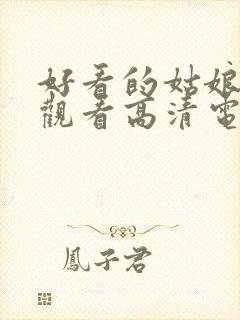 好看的姑娘
觀看高清電
鳳子君